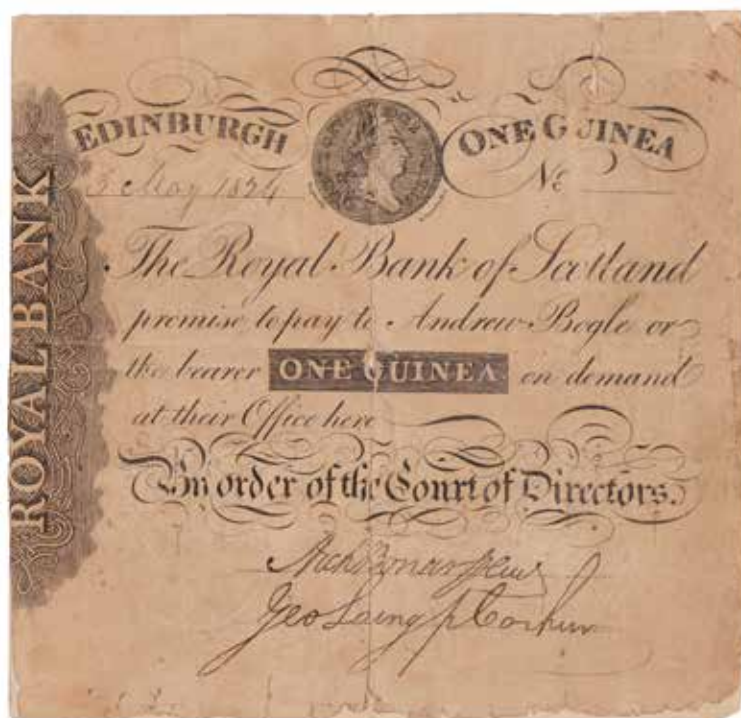 ROYAL BANK
EDINBURGH
ONE GUINEA
5 May 1824
No
The Royal Bank of Scotland
promise to pay to Andrew Bogle or
the bearer ONE GUINEA on demand
at their Office here
By order of the Court of Directors.
Geo Laing p Cashier